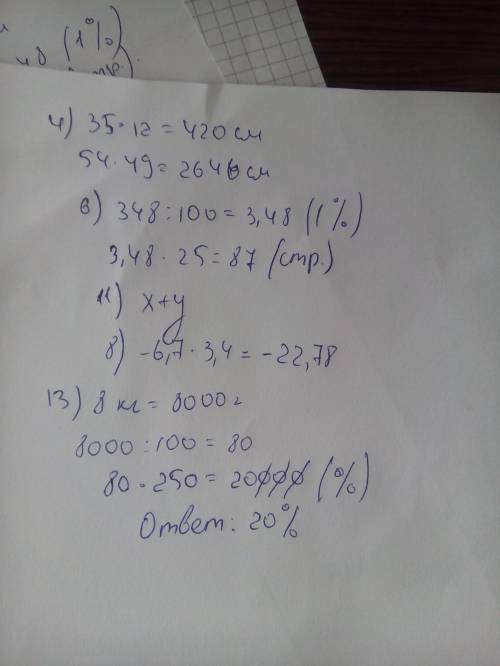 48 (1%)
4) 35·12=420см
54·49=2646см
6) 348:100=3,48 (1%)
3,48·25=87 (стр.)
11) x+y
8) -6,7·3,4=-22,78
13) 8 кг=8000г
8000:100=80
80·250=20000 (%)
Ответ: 20%